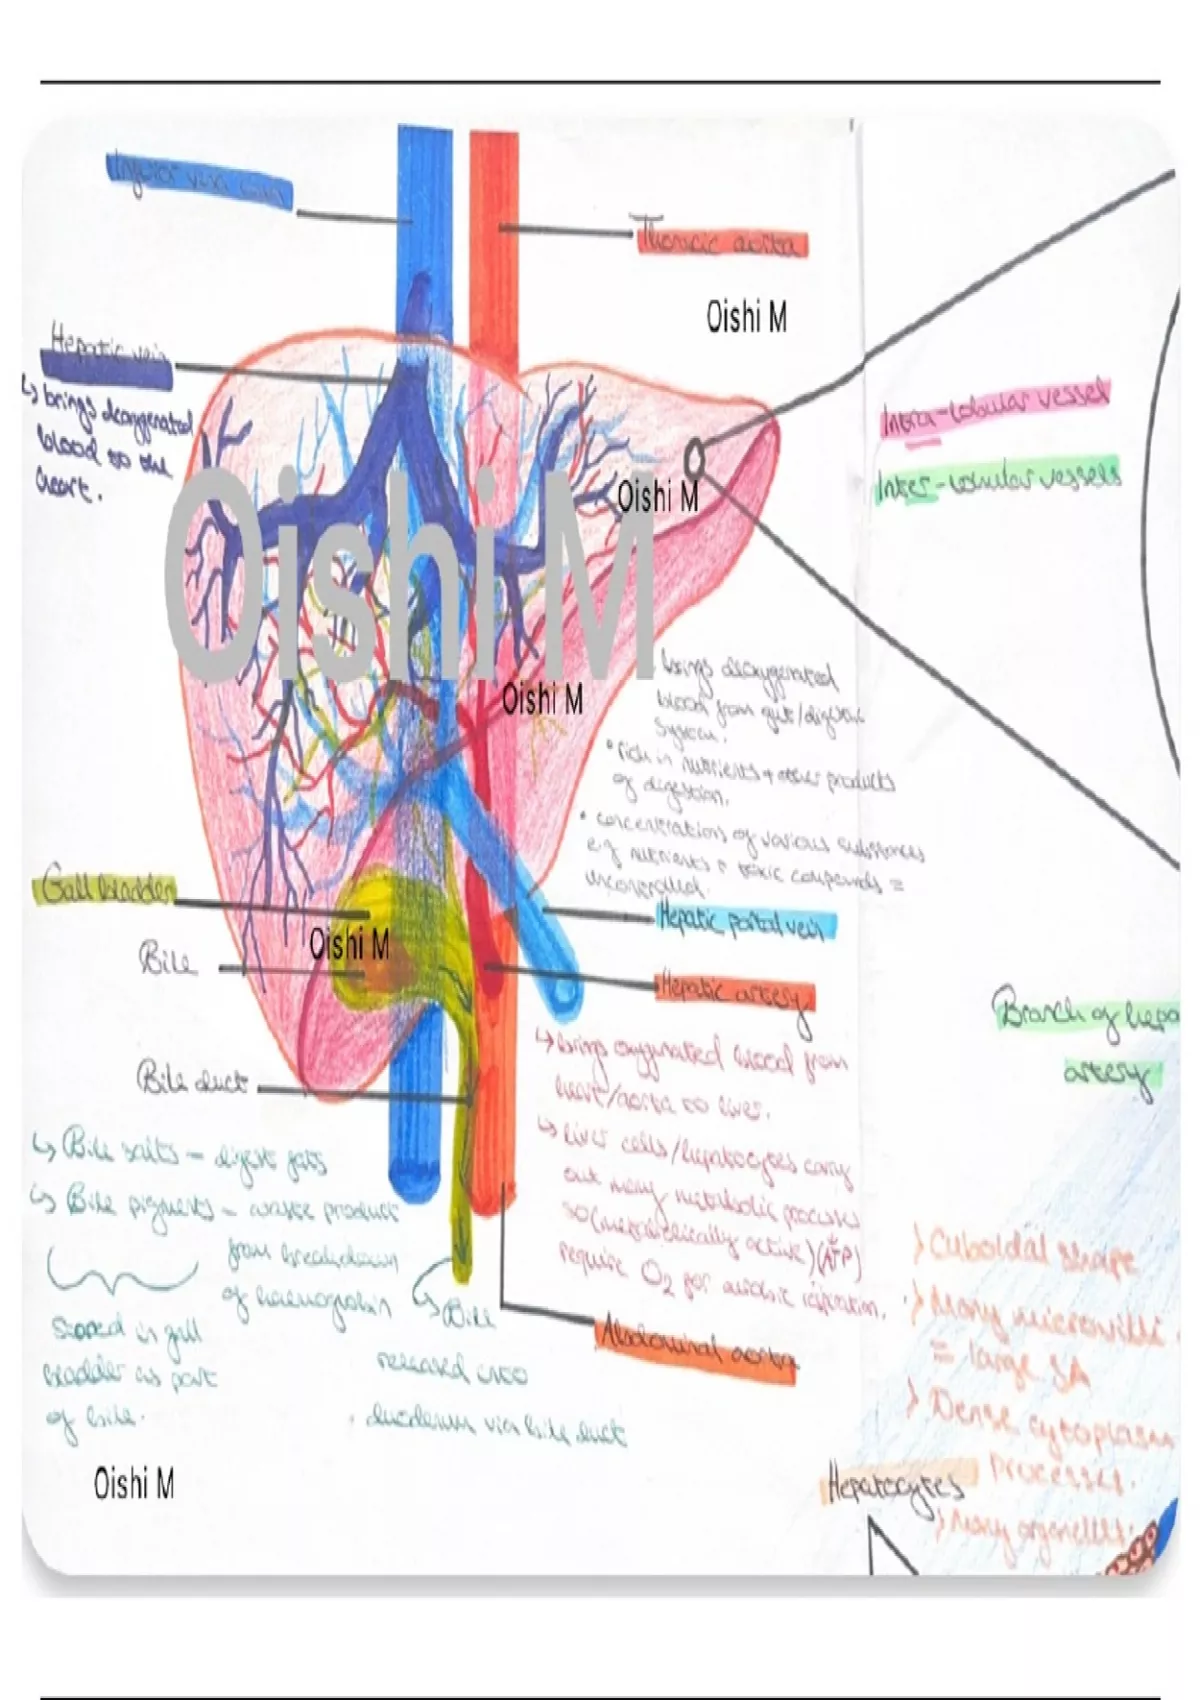 Inferior vena cava
Thoracic aorta
Oishi M
Hepatic vein
↳ brings deoxygenated
blood to the
heart.
Intra-lobular vessel
Inter-lobular vessels
Oishi M
Oishi M
Oishi M
brings deoxygenated
blood from gut/digestive
system.
• rich in nutrients + other products
of digestion.
• concentrations of various substances
e.g nutrients + toxic compounds =
uncontrolled.
Gall bladder
Hepatic portal vein
Oishi M
Bile
Hepatic artery
Branch of hepa
artery
↳ brings oxygenated blood from
heart/aorta to liver.
↳ liver cells/hepatocytes carry
out many metabolic processes
so (metabolically active) (ATP)
require O2 for aerobic respiration.
Bile duct
↳ Bile salts – digest fats
↳ Bile pigments – waste product
from breakdown
of haemoglobin
stored in gall
bladder as part
of bile.
↳ Bile
released into
duodenum via bile duct
Abdominal aorta
> Cuboidal shape
> Many microvilli
= large SA
> Dense cytoplasm
processes.
> Many organelles.
Hepatocytes
Oishi M